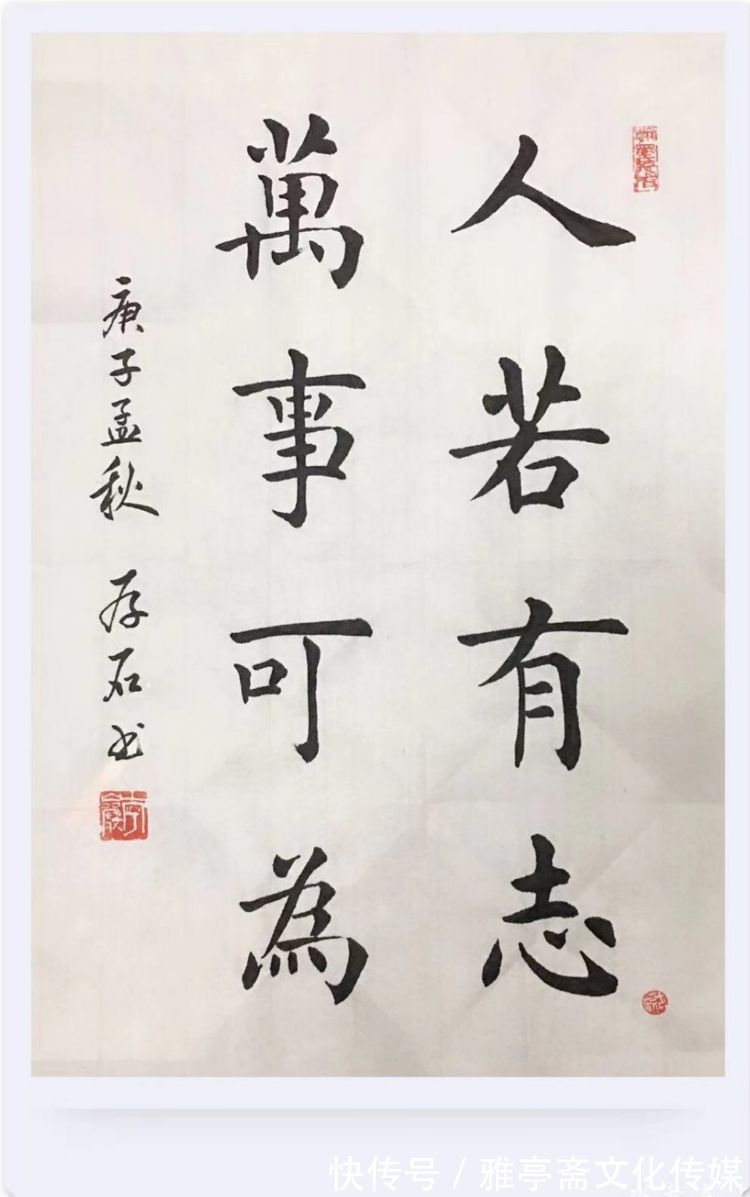 人若有志
萬事可為
庚子孟秋 存石书
快传号 / 雅亭斋文化传媒